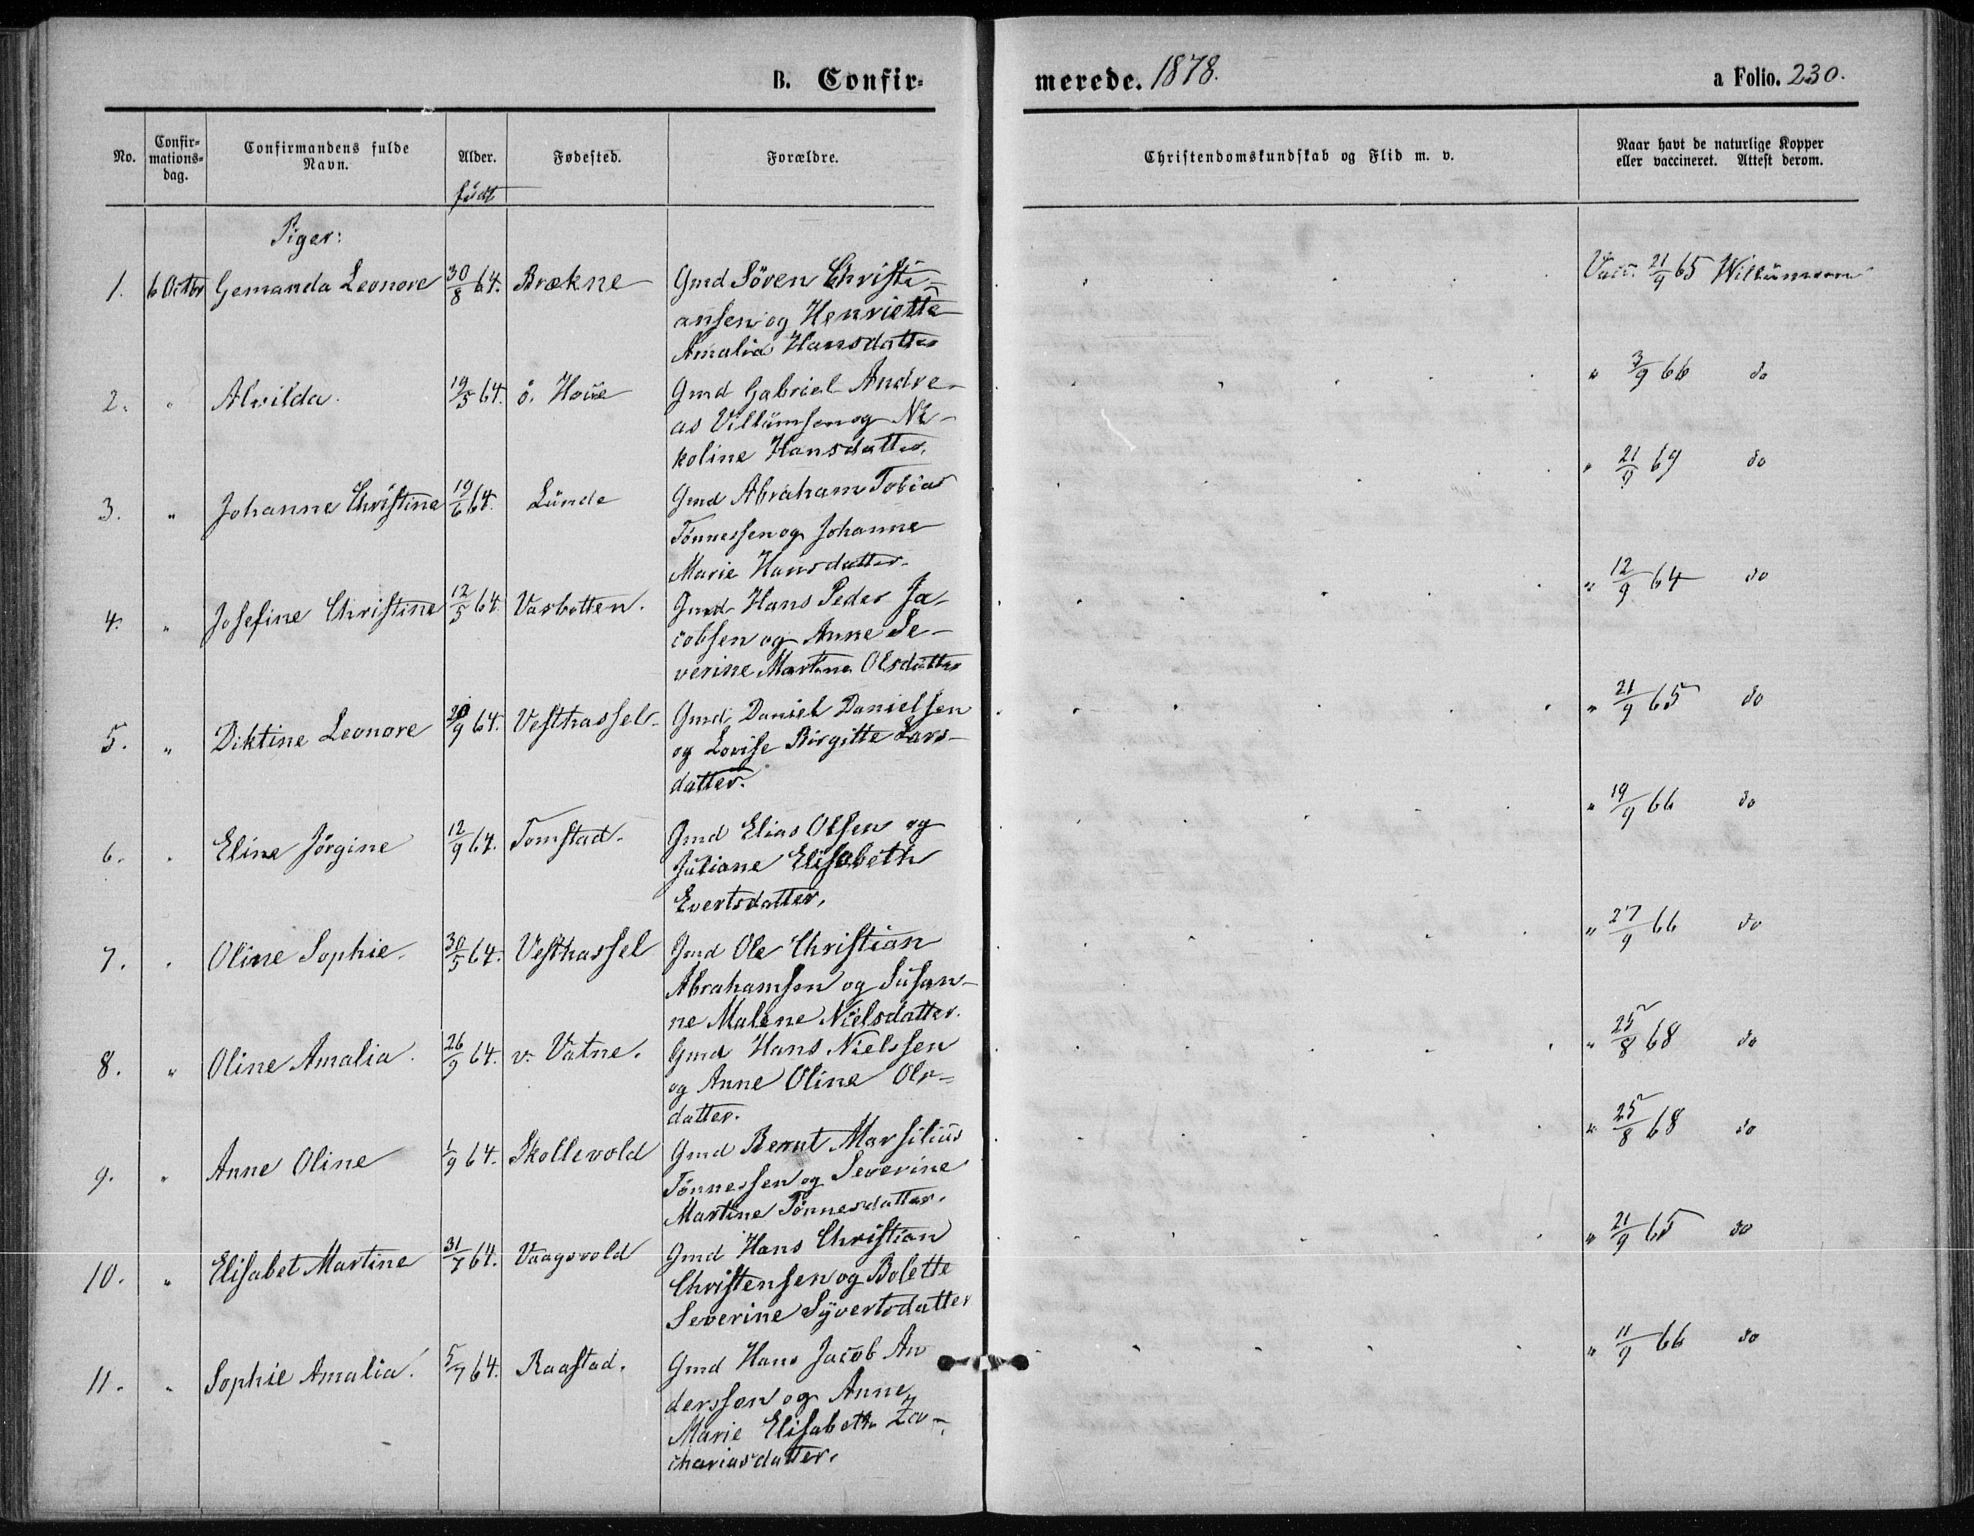 B. Confir-
merede. 1878.
a Folio. 230.
No.
Confir-
mations-
dag.
Confirmandens fulde
Navn.
Alder.
Fødested.
Forældre.
Christendomskundskab og Flid m. v.
Naar havt de naturlige Kopper
eller vaccineret. Attest derom.
født
Piger:
1. 6 Octbr Gemanda Leonore 30/8 64. Brækne Gmd Sören Christi- Vacc. 21/9 65 Willumsen
ansen og Henriette
Amalia Hansdatter
2. " Alvilda. 19/5 64. ö. Houe Gmd Gabriel Andre- " 3/9 66 do
as Villumsen og Ni-
koline Hansdatter.
3. " Johanne Christine 19/6 64. Lunde Gmd Abraham Tobias " 21/9 69 do
Tönnessen og Johanne
Marie Hansdatter.
4. " Josefine Christine 12/5 64. Vasbotten. Gmd Hans Peder Ja- " 12/9 64 do
cobsen og Anne Se-
verine Martine Olsdatter
5. " Diktine Leonore 20/9 64. Vesthassel. Gmd Daniel Danielsen " 21/9 65 do
og Lovise Birgitte Lars-
datter.
6. " Eline Jörgine 12/9 64. Tomstad. Gmd Elias Olsen og " 19/9 66 do
Juliane Elisabeth
Evertsdatter.
7. " Oline Sophie. 30/5 64. Vesthassel Gmd Ole Christian " 27/9 66 do
Abrahamsen og Susan-
ne Malene Nielsdatter.
8. " Oline Amalia. 26/9 64. v. Vatne. Gmd Hans Nielssen " 25/8 68 do
og Anne Oline Ols-
datter.
9. " Anne Oline 1/9 64. Skollevold Gmd Bernt Marsilius " 25/8 68 do
Tönnessen og Severine
Martine Tönnesdatter.
10. " Elisabet Martine 31/7 64. Vaagsvold Gmd Hans Christian " 21/9 65 do
Christensen og Bolette
Severine Syvertsdatter
11. " Sophie Amalia. 5/7 64. Raastad. Gmd Hans Jacob An " 11/9 66 do
derssen og Anne
Marie Elisabeth Za-
chariasdatter.